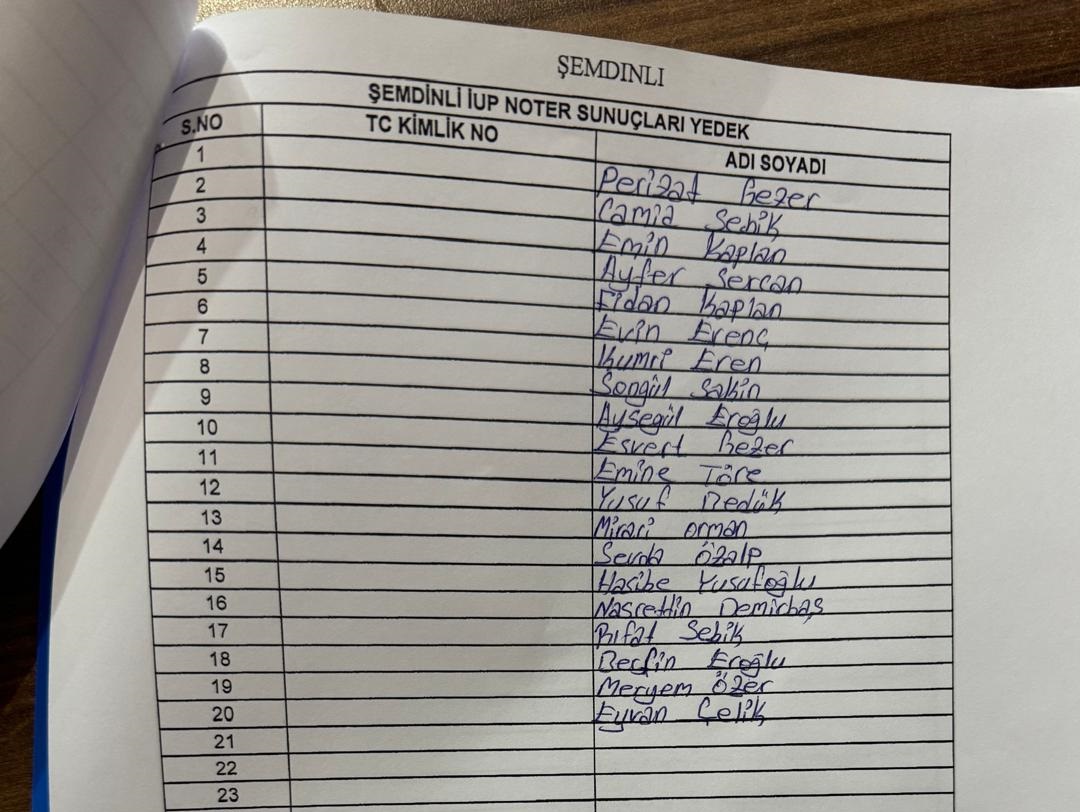 ŞEMDINLI
ŞEMDİNLİ İUP NOTER SUNUÇLARI YEDEK
S.NO TC KİMLİK NO ADI SOYADI
1 Perizat Gezer
2 Camia Sebik
3 Emin Kaplan
4 Ayfer Sercan
5 Fidan Kaplan
6 Evin Erenç
7 Kumri Eren
8 Songül Sakin
9 Aysegül Eroğlu
10 Esvert Gezer
11 Emine Töre
12 Yusuf Bedük
13 Miraci orman
14 Sevda Özalp
15 Hasibe Yusufoğlu
16 Nasrettin Demirbaş
17 Rıfat Sebik
18 Berfin Eroğlu
19 Meryem Özer
20 Eyvan Çelik
21
22
23